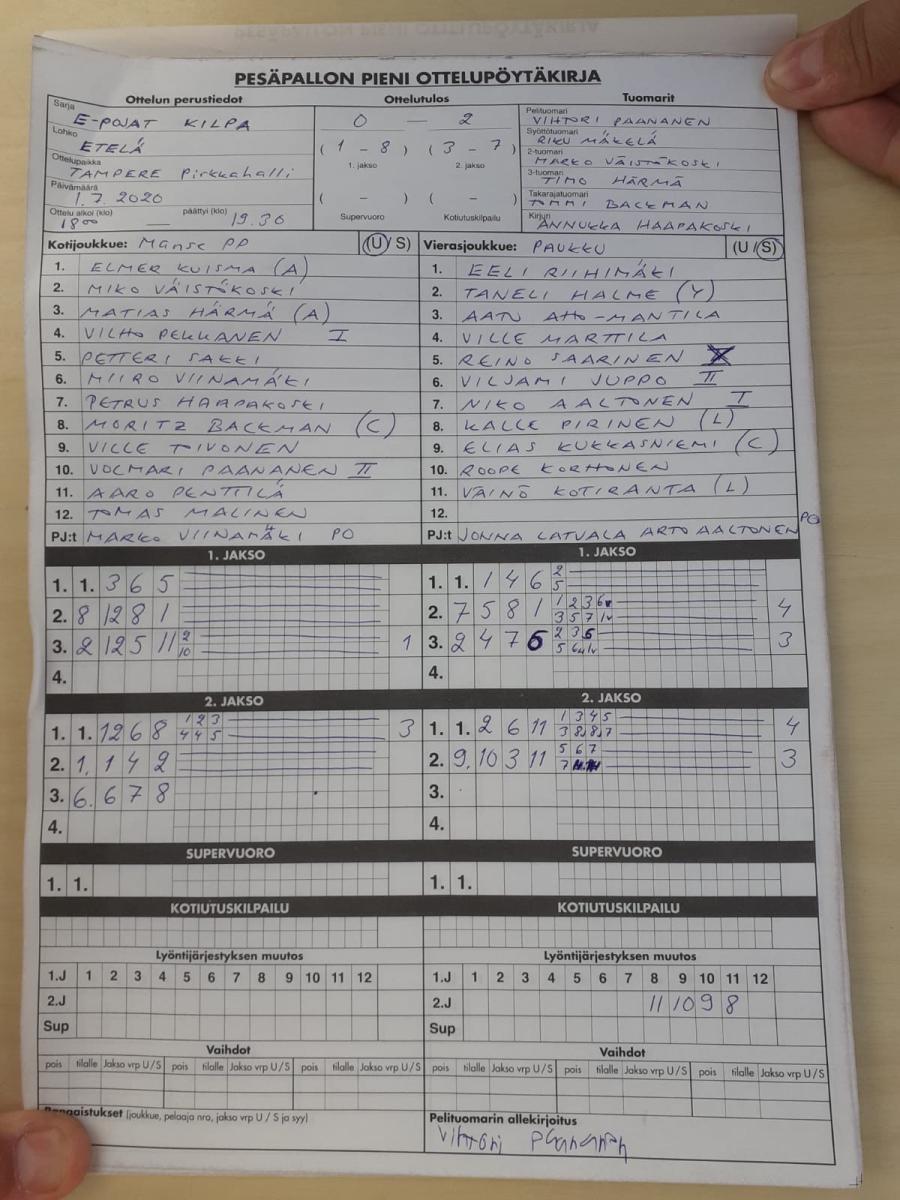 PESÄPALLON PIENI OTTELUPÖYTÄKIRJA
Ottelun perustiedot Ottelutulos Tuomarit
Sarja E-POJAT KILPA
Lohko ETELÄ
Ottelupaikka TAMPERE Pirkkahalli
Päivämäärä 1.7.2020
Ottelu alkoi (klo) 18 00 — päättyi (klo) 19.30
0 — 2
(1 - 8) (3 - 7)
1. jakso 2. jakso
( - ) ( - )
Supervuoro Kotiutuskilpailu
Pelituomari VIHTORI PAANANEN
Syöttötuomari RIKU MÄKELÄ
2-tuomari MARKO VÄISTÖKOSKI
3-tuomari TIMO HÄRMÄ
Takarajatuomari TOMMI BACKMAN
Kirjuri ANNUKKA HAAPAKOSKI
Kotijoukkue: Manse PP (U / S)
1. ELMER KUISMA (A)
2. MIKO VÄISTÖKOSKI
3. MATIAS HÄRMÄ (A)
4. VILHO PEKKANEN I
5. PETTERI SAKKI
6. MIIRO VIINAMÄKI
7. PETRUS HAAPAKOSKI
8. MORITZ BACKMAN (C)
9. VILLE TOIVONEN
10. VOLMARI PAANANEN II
11. AARO PENTTILÄ
12. TOMAS MALINEN
PJ:t MARKO VIINAMÄKI PO
Vierasjoukkue: PAUKKU (U / S)
1. EELI RIIHIMÄKI
2. TANELI HALME (Y)
3. AATU AHO-MANTILA
4. VILLE MARTTILA
5. REINO SAARINEN
6. VILJAMI JUPPO II
7. NIKO AALTONEN I
8. KALLE PIRINEN (L)
9. ELIAS KUKKASNIEMI (C)
10. ROOPE KORHONEN
11. VÄINÖ KOTIRANTA (L)
12.
PJ:t JONNA LATVALA ARTO AALTONEN PO
1. JAKSO
1. 1. 3 6 5
2. 8 12 8 1
3. 2 12 5 11 2 10 1
4.
2. JAKSO
1. 1. 12 6 8 1 2 3 3
4 4 5
2. 1. 1 4 2
3. 6. 6 7 8
4.
SUPERVUORO
1. 1.
KOTIUTUSKILPAILU
Lyöntijärjestyksen muutos
1.J 1 2 3 4 5 6 7 8 9 10 11 12
2.J
Sup
Vaihdot
pois tilalle Jakso vrp U / S pois tilalle Jakso vrp U / S pois tilalle Jakso vrp U / S
(joukkue, pelaaja nro, jakso vrp U / S ja syy)
1. JAKSO
1. 1. 1 4 6 2 5
2. 7 5 8 1 1 2 3 6 4
3 5 7 lv
3. 2 4 7 6 2 3 6 3
5
4.
2. JAKSO
1. 1. 2 6 11 1 3 4 5 4
3 8 8 7
2. 9. 10 3 11 5 6 7 3
7
3.
4.
SUPERVUORO
1. 1.
KOTIUTUSKILPAILU
Lyöntijärjestyksen muutos
1.J 1 2 3 4 5 6 7 8 9 10 11 12
2.J 11 10 9 8
Sup
Vaihdot
pois tilalle Jakso vrp U / S pois tilalle Jakso vrp U / S pois tilalle Jakso vrp U / S
Pelituomarin allekirjoitus
Vihtori Paananen